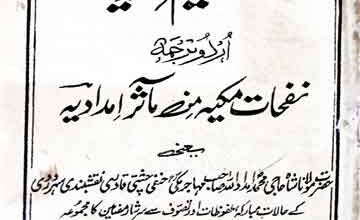 اُردُو ترجمہ
نفحات مکیہ من مآثر امدادیہ
یعنی
حضرت مولانا شاہ حاجی محمد امداد اللہ صاحب مہاجر مکی حنفی چشتی قادری نقشبندی سہروردی
کے حالات مبارکہ ملفوظات اور تصوف سے سرشار مضامین کا مجموعہ